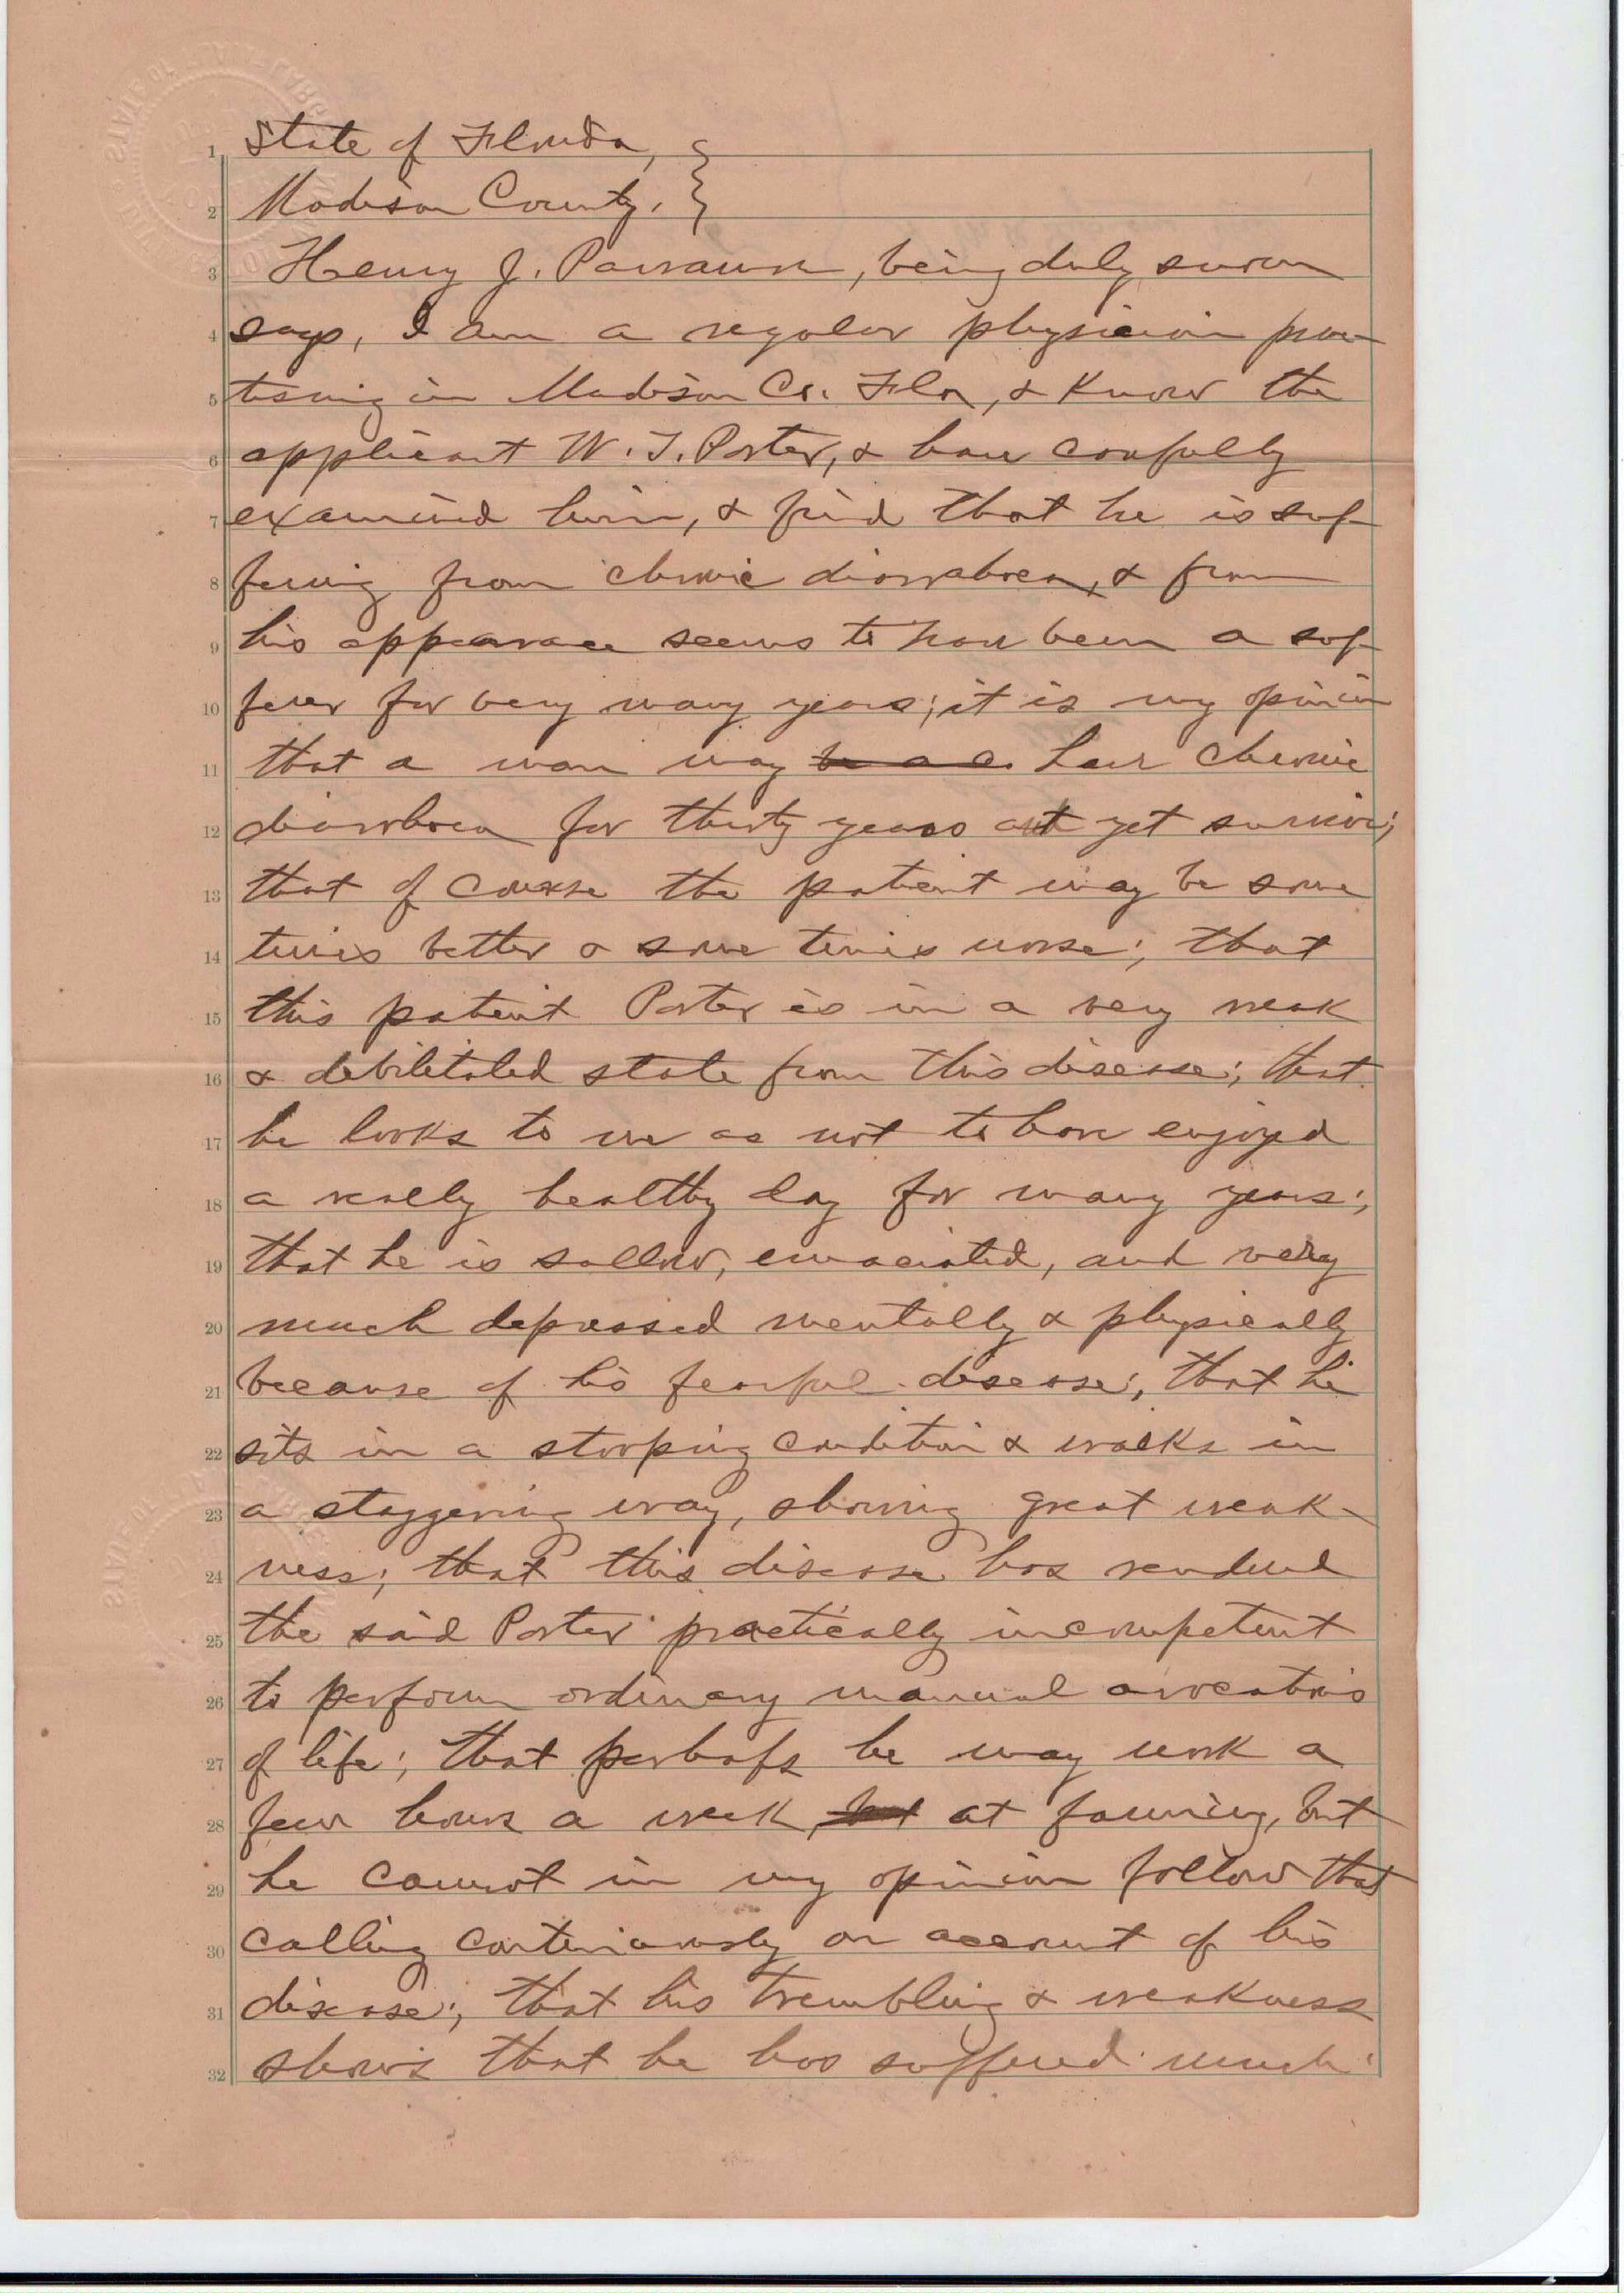 State of Florida,
Madison County.
Henry J. being duly sworn
says, I am a regular physician prac-
tising in Madison Co. Fla, & know the
applicant W. T. Porter, & have carefully
examined him, & find that he is suf-
fering from chronic diarrahoea, & from
his appearance seems to have been a suf-
ferer for very many years; it is my opinion
that a man may have chronic
diarrhoea for thirty years and yet survive;
that of course the patient may be some
times better & some times worse; that
this patient Porter is in a very weak
& debilitated state from this disease; that
he looks to me as not to have enjoyed
a really healthy day for many years;
that he is sallow, emaciated, and very
much depressed mentally & physically
because of his fearful disease; that he
sits in a stooping condition & walks in
a staggering way, showing great weak-
ness; that this disease has rendered
the said Porter practically incompetent
to perform ordinary manual avocations
of life; that perhaps he may work a
few hours a week, at farming, but
he cannot in my opinion follow that
calling continuously on account of his
disease; that his trembling & weakness
shows that he has suffered much
1
2
3
4
5
6
7
8
9
10
11
12
13
14
15
16
17
18
19
20
21
22
23
24
25
26
27
28
29
30
31
32